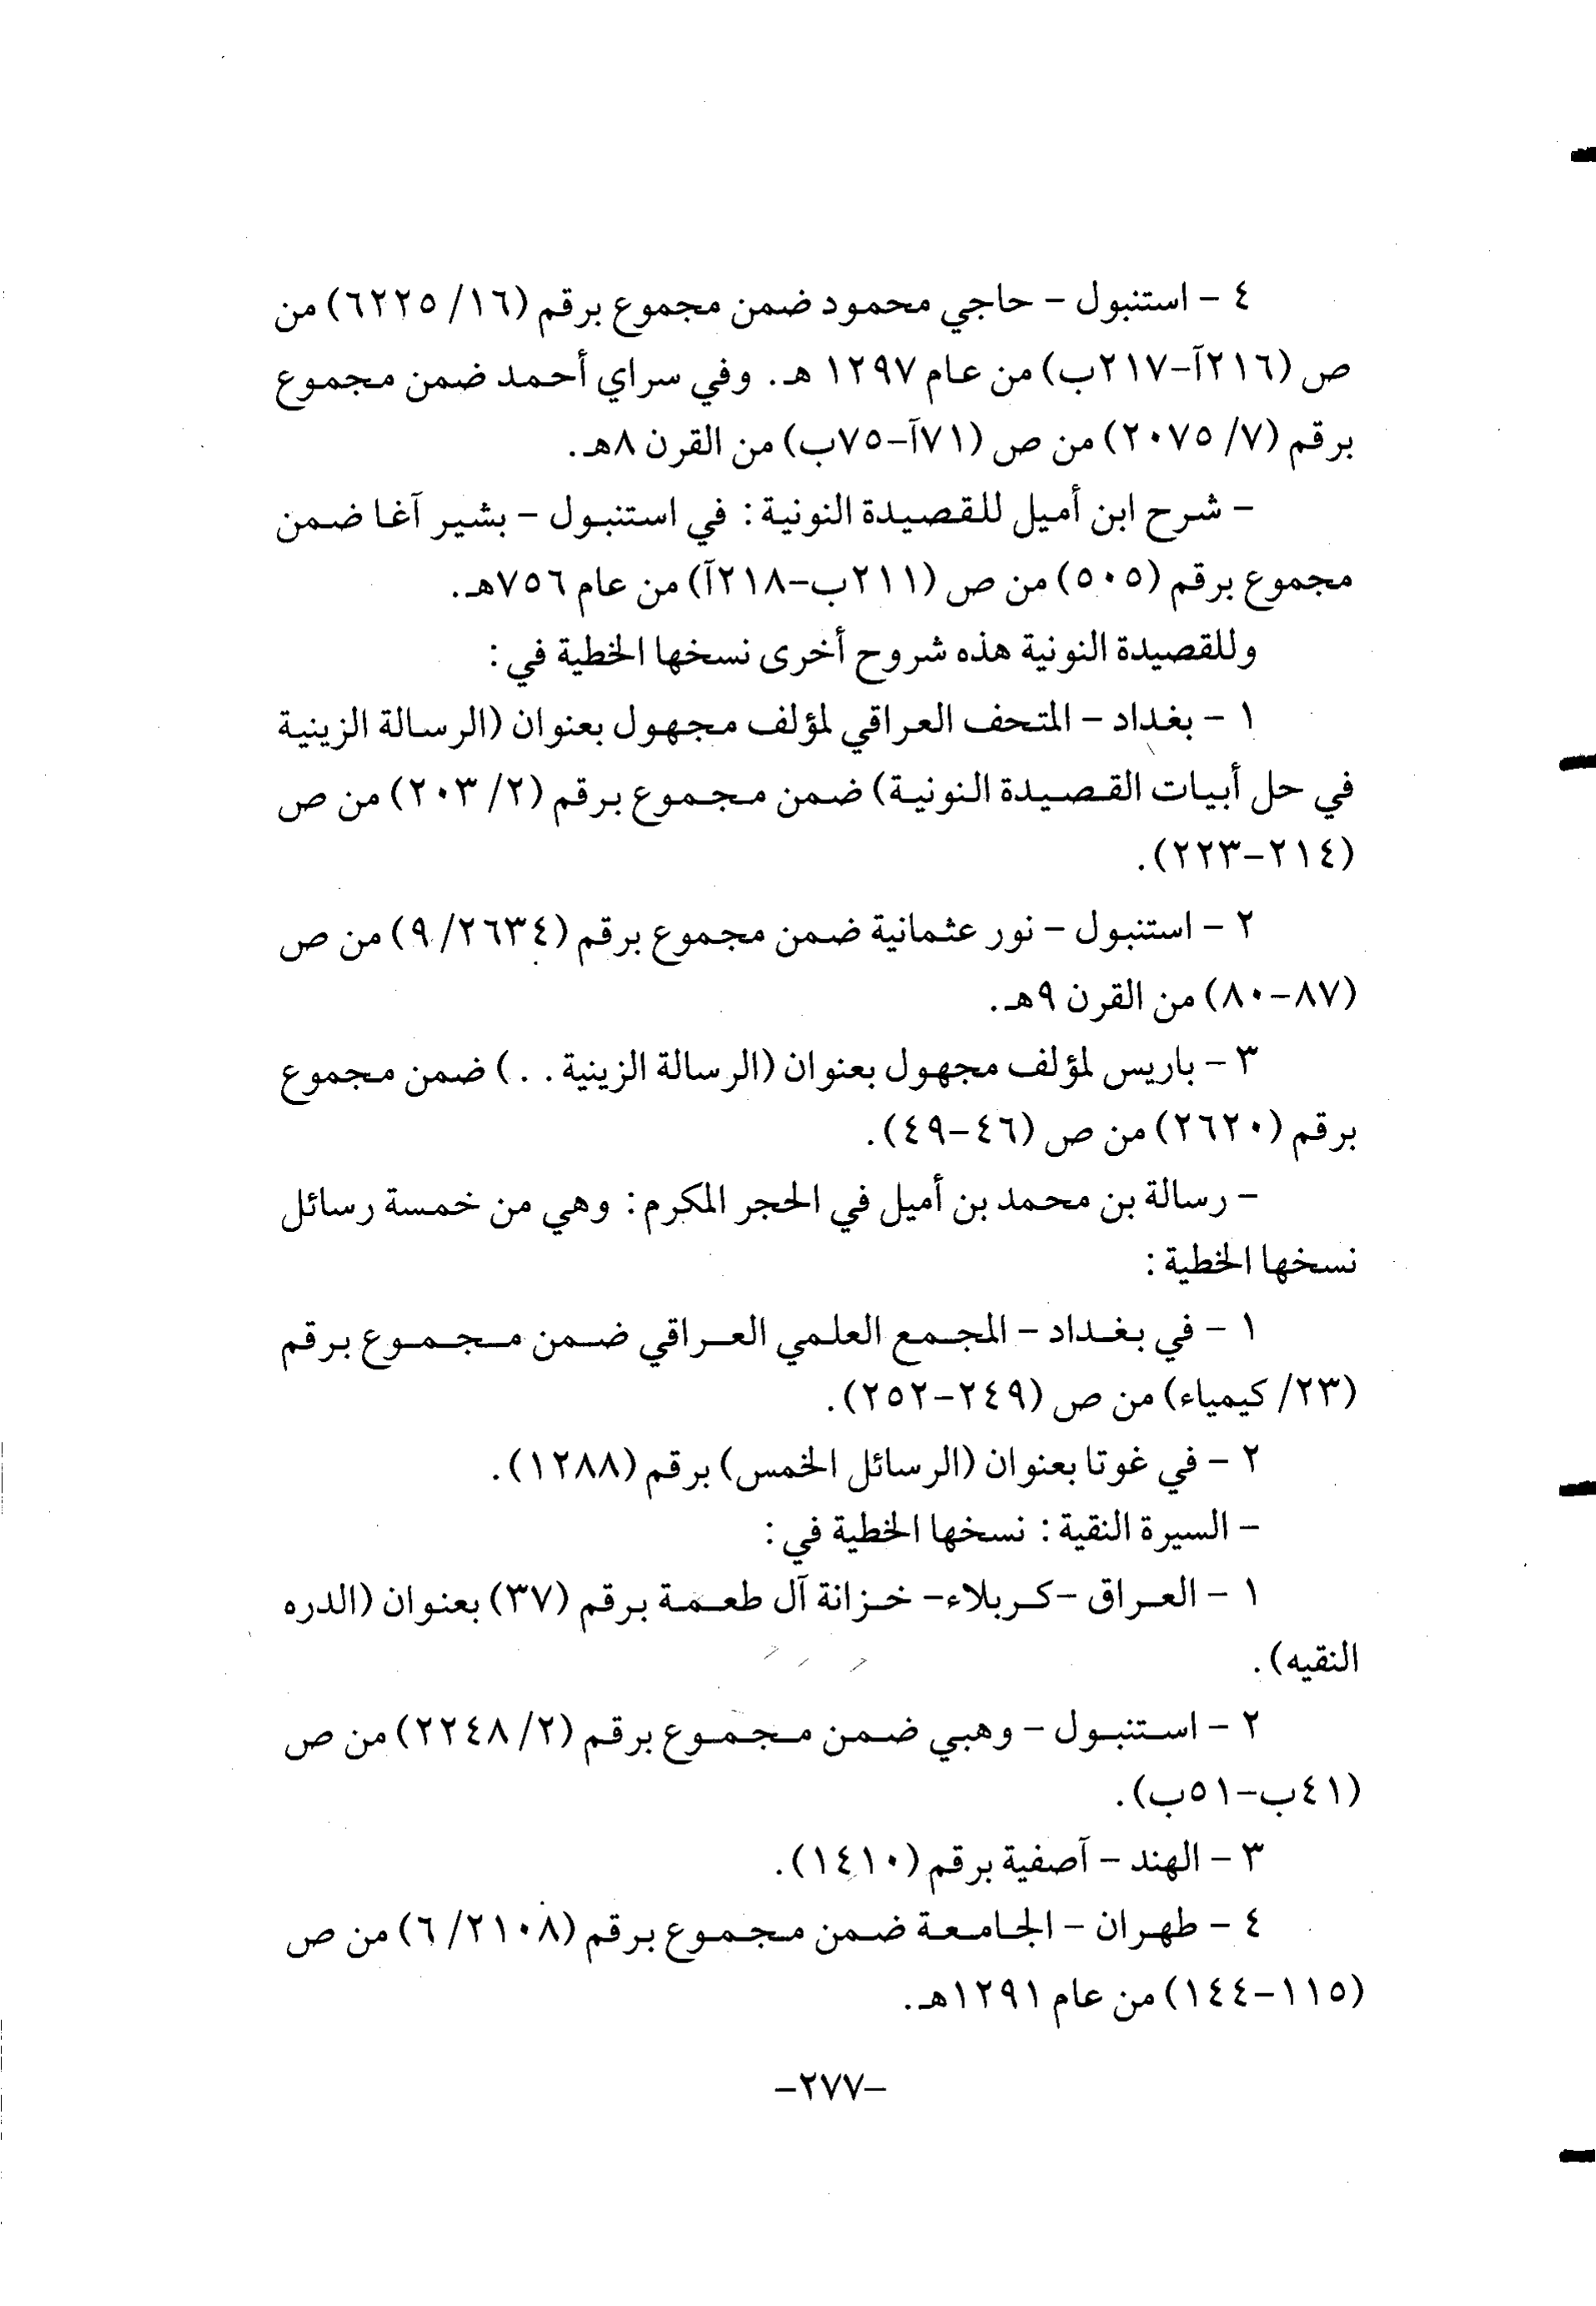 ٤ - استنبول - حاجي محمود ضمن مجموع برقم (١٦/ ٦٢٢٥) من
ص (٢١٦آ-٢١٧ب) من عام ١٢٩٧ هـ. وفي سراي أحمد ضمن مجموع
برقم (٧/ ٢٠٧٥) من ص (٧١آ-٧٥ب) من القرن ٨هـ.
- شرح ابن أميل للقصيدة النونية: في استنبول - بشير آغا ضمن
مجموع برقم (٥٠٥) من ص (٢١١ب-٢١٨آ) من عام ٧٥٦هـ.
وللقصيدة النونية هذه شروح أخرى نسخها الخطية في:
١ - بغداد - المتحف العراقي لمؤلف مجهول بعنوان (الرسالة الزينية
في حل أبيات القصيدة النونية) ضمن مجموع برقم (٢/ ٢٠٣) من ص
(٢١٤-٢٢٣).
٢ - استنبول - نور عثمانية ضمن مجموع برقم (٢٦٣٤/ ٩) من ص
(٨٧-٨٠) من القرن ٩هـ.
٣ - باريس لمؤلف مجهول بعنوان (الرسالة الزينية. .) ضمن مجموع
برقم (٢٦٢٠) من ص (٤٦-٤٩).
- رسالة بن محمد بن أميل في الحجر المكرم: وهي من خمسة رسائل
نسخها الخطية:
١ - في بغداد - المجمع العلمي العراقي ضمن مجموع برقم
(٢٣/ كيمياء) من ص (٢٤٩-٢٥٢).
٢ - في غوتا بعنوان (الرسائل الخمس) برقم (١٢٨٨).
- السيرة النقية: نسخها الخطية في:
١ - العراق -كربلاء- خزانة آل طعمة برقم (٣٧) بعنوان (الدره
النقيه).
٢ - استنبول - وهبي ضمن مجموع برقم (٢/ ٢٢٤٨) من ص
(٤١ب-٥١ب).
٣ - الهند - آصفية برقم (١٤١٠).
٤ - طهران - الجامعة ضمن مجموع برقم (٢١٠٨/ ٦) من ص
(١١٥-١٤٤) من عام ١٢٩١هـ.
-٢٧٧-